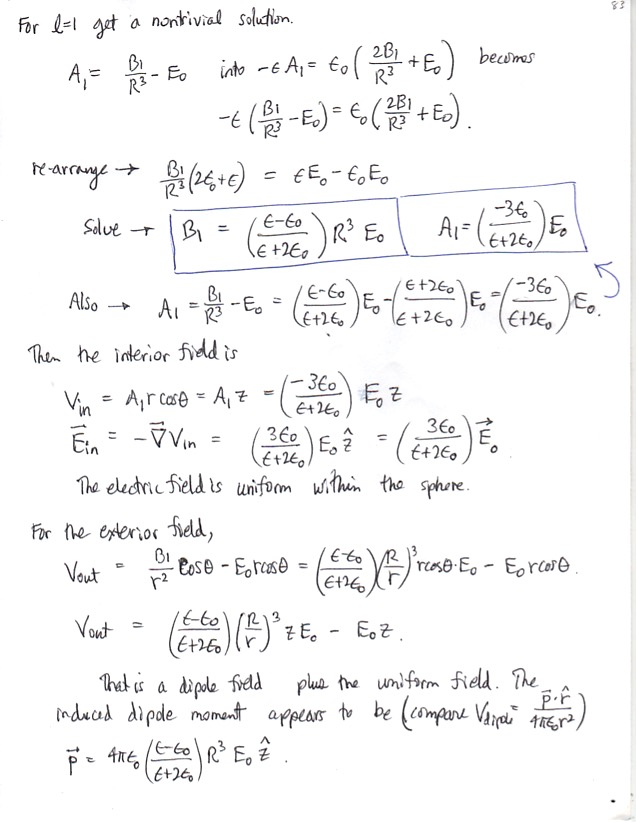 83
For l=1 get a nontrivial solution.
A₁ = B₁/R³ - E₀ into -ϵA₁ = ϵ₀(2B₁/R³ + E₀) becomes
-ϵ(B₁/R³ - E₀) = ϵ₀(2B₁/R³ + E₀).
re-arrange → B₁/R³ (2ϵ₀+ϵ) = ϵE₀ - ϵ₀E₀
Solve → B₁ = ((ϵ-ϵ₀)/(ϵ+2ϵ₀)) R³ E₀ A₁ = (-3ϵ₀/(ϵ+2ϵ₀)) E₀
Also → A₁ = B₁/R³ - E₀ = ((ϵ-ϵ₀)/(ϵ+2ϵ₀)) E₀ - ((ϵ+2ϵ₀)/(ϵ+2ϵ₀)) E₀ = (-3ϵ₀/(ϵ+2ϵ₀)) E₀.
Then the interior field is
Vin = A₁ r cosθ = A₁ z = (-3ϵ₀/(ϵ+2ϵ₀)) E₀ z
E⃗in = -∇⃗Vin = (3ϵ₀/(ϵ+2ϵ₀)) E₀ ẑ = (3ϵ₀/(ϵ+2ϵ₀)) E⃗₀
The electric field is uniform within the sphere.
For the exterior field,
Vout = B₁/r² cosθ - E₀ r cosθ = ((ϵ-ϵ₀)/(ϵ+2ϵ₀)) (R/r)³ r cosθ · E₀ - E₀ r cosθ.
Vout = ((ϵ-ϵ₀)/(ϵ+2ϵ₀)) (R/r)³ z E₀ - E₀ z.
That is a dipole field plus the uniform field. The
induced dipole moment appears to be (compare Vdipole = p⃗·r̂/4πϵ₀r²)
p⃗ = 4πϵ₀ ((ϵ-ϵ₀)/(ϵ+2ϵ₀)) R³ E₀ ẑ.